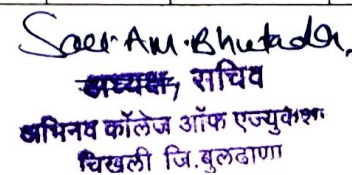 Saer AM. Bhutada
अध्यक्ष, सचिव
अभिनव कॉलेज ऑफ एज्युकेशन
चिखली जि.बुलढाणा